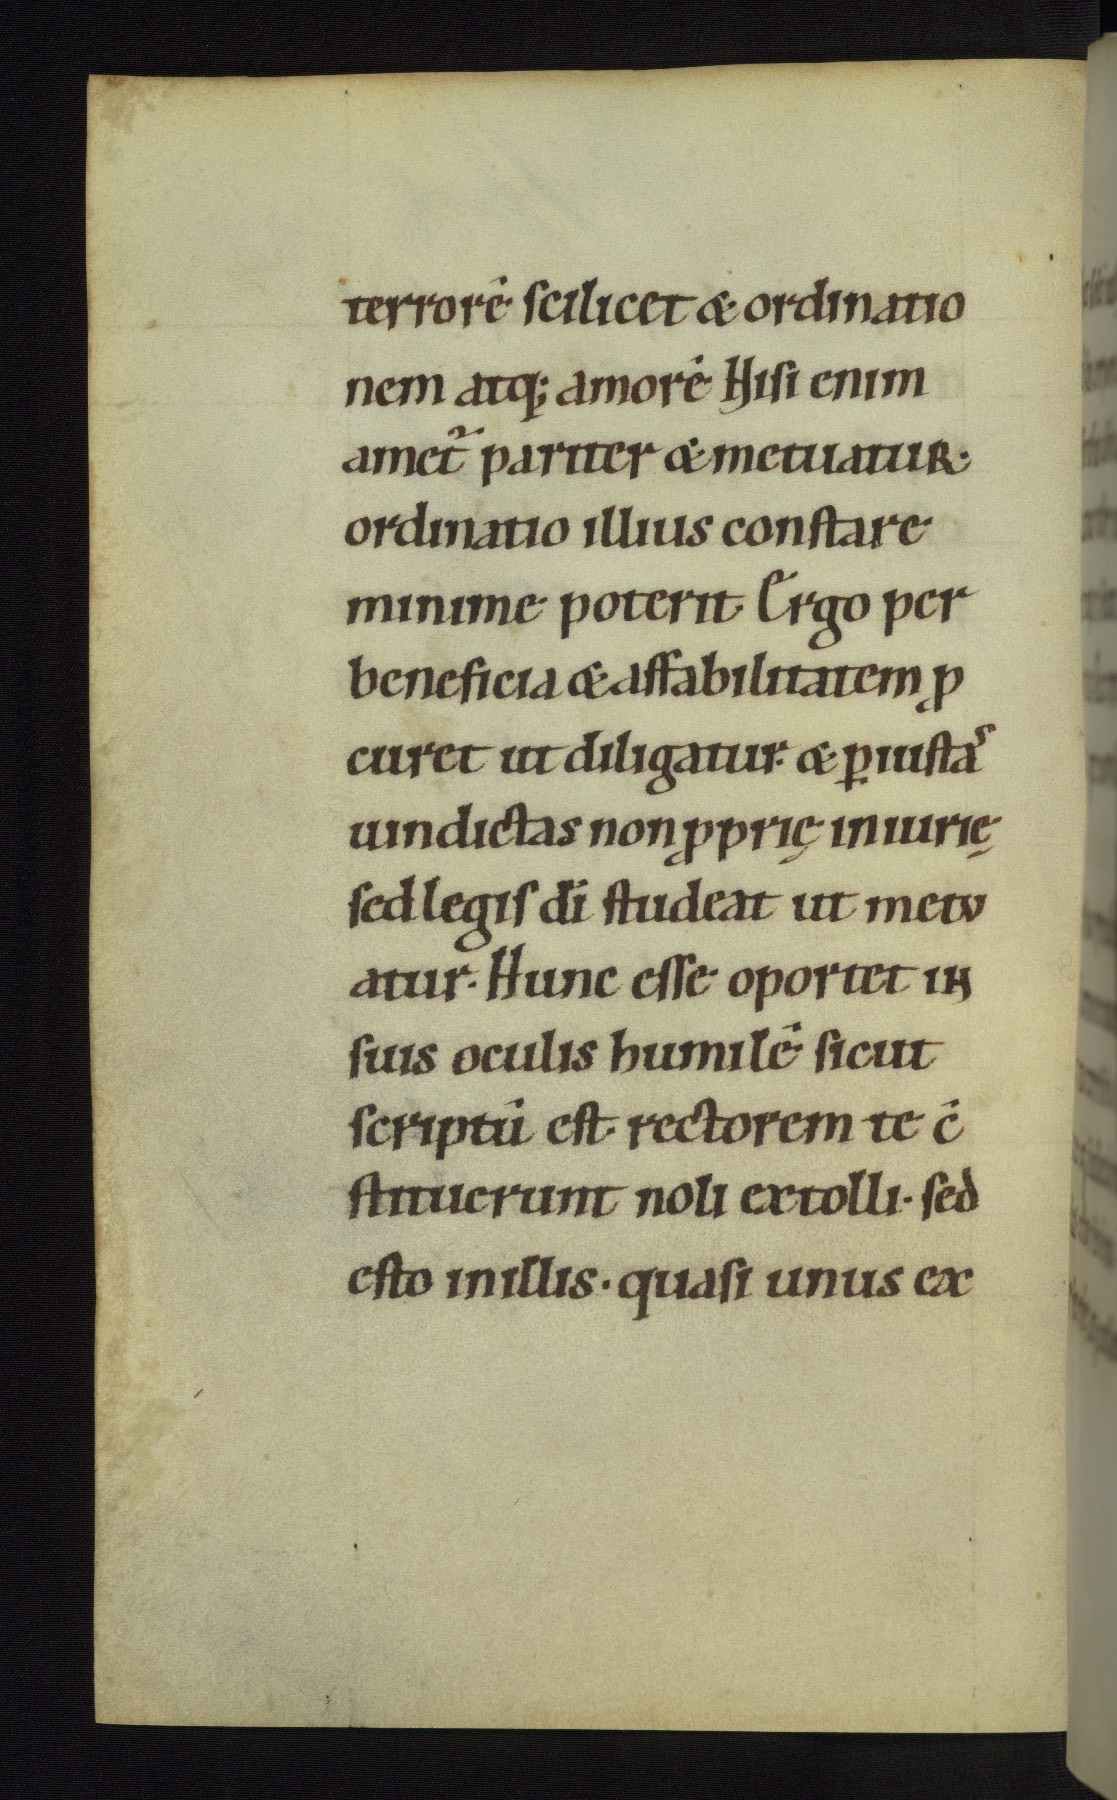 terrorē scilicet & ordinatio
nem atq; amorē Nisi enim
amet᷑ pariter & metuatur·
ordinatio illius constare
minime poterit. Ergo per
beneficia & affabilitatem ꝓ
curet ut diligatur· & ꝑ iustas
uindictas non ꝓprię iniurię
sed legis dī studeat ut metu
atur· Hunc esse oportet in
suis oculis humilē sicut
scriptū est· rectorem te c̄
stituerunt noli extolli· sed
esto in illis· quasi unus ex